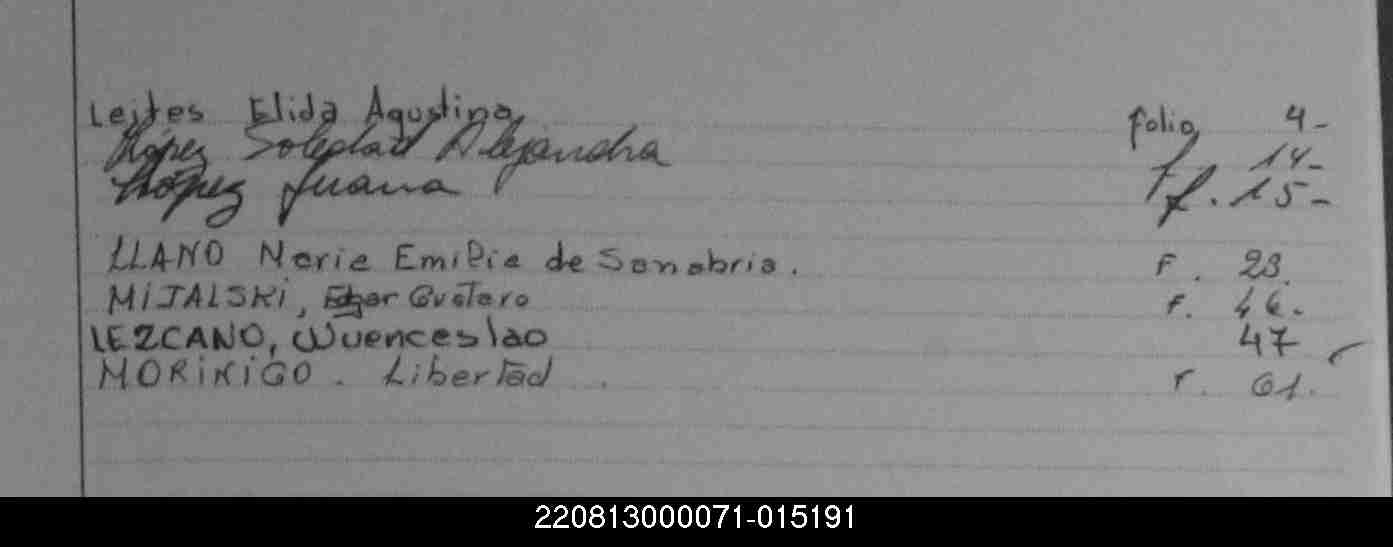 Leites Elida Agustina folio 4-
López Soledad Alejandra f. 14-
López Juana f. 15-
LLANO Maria Emilia de Sanabria. F. 23.
MiJALSKi, Edgar Gustavo F. 46.
LEZCANO, Wuenceslao 47
MORiNiGO. Libertad F. 61.
220813000071-015191